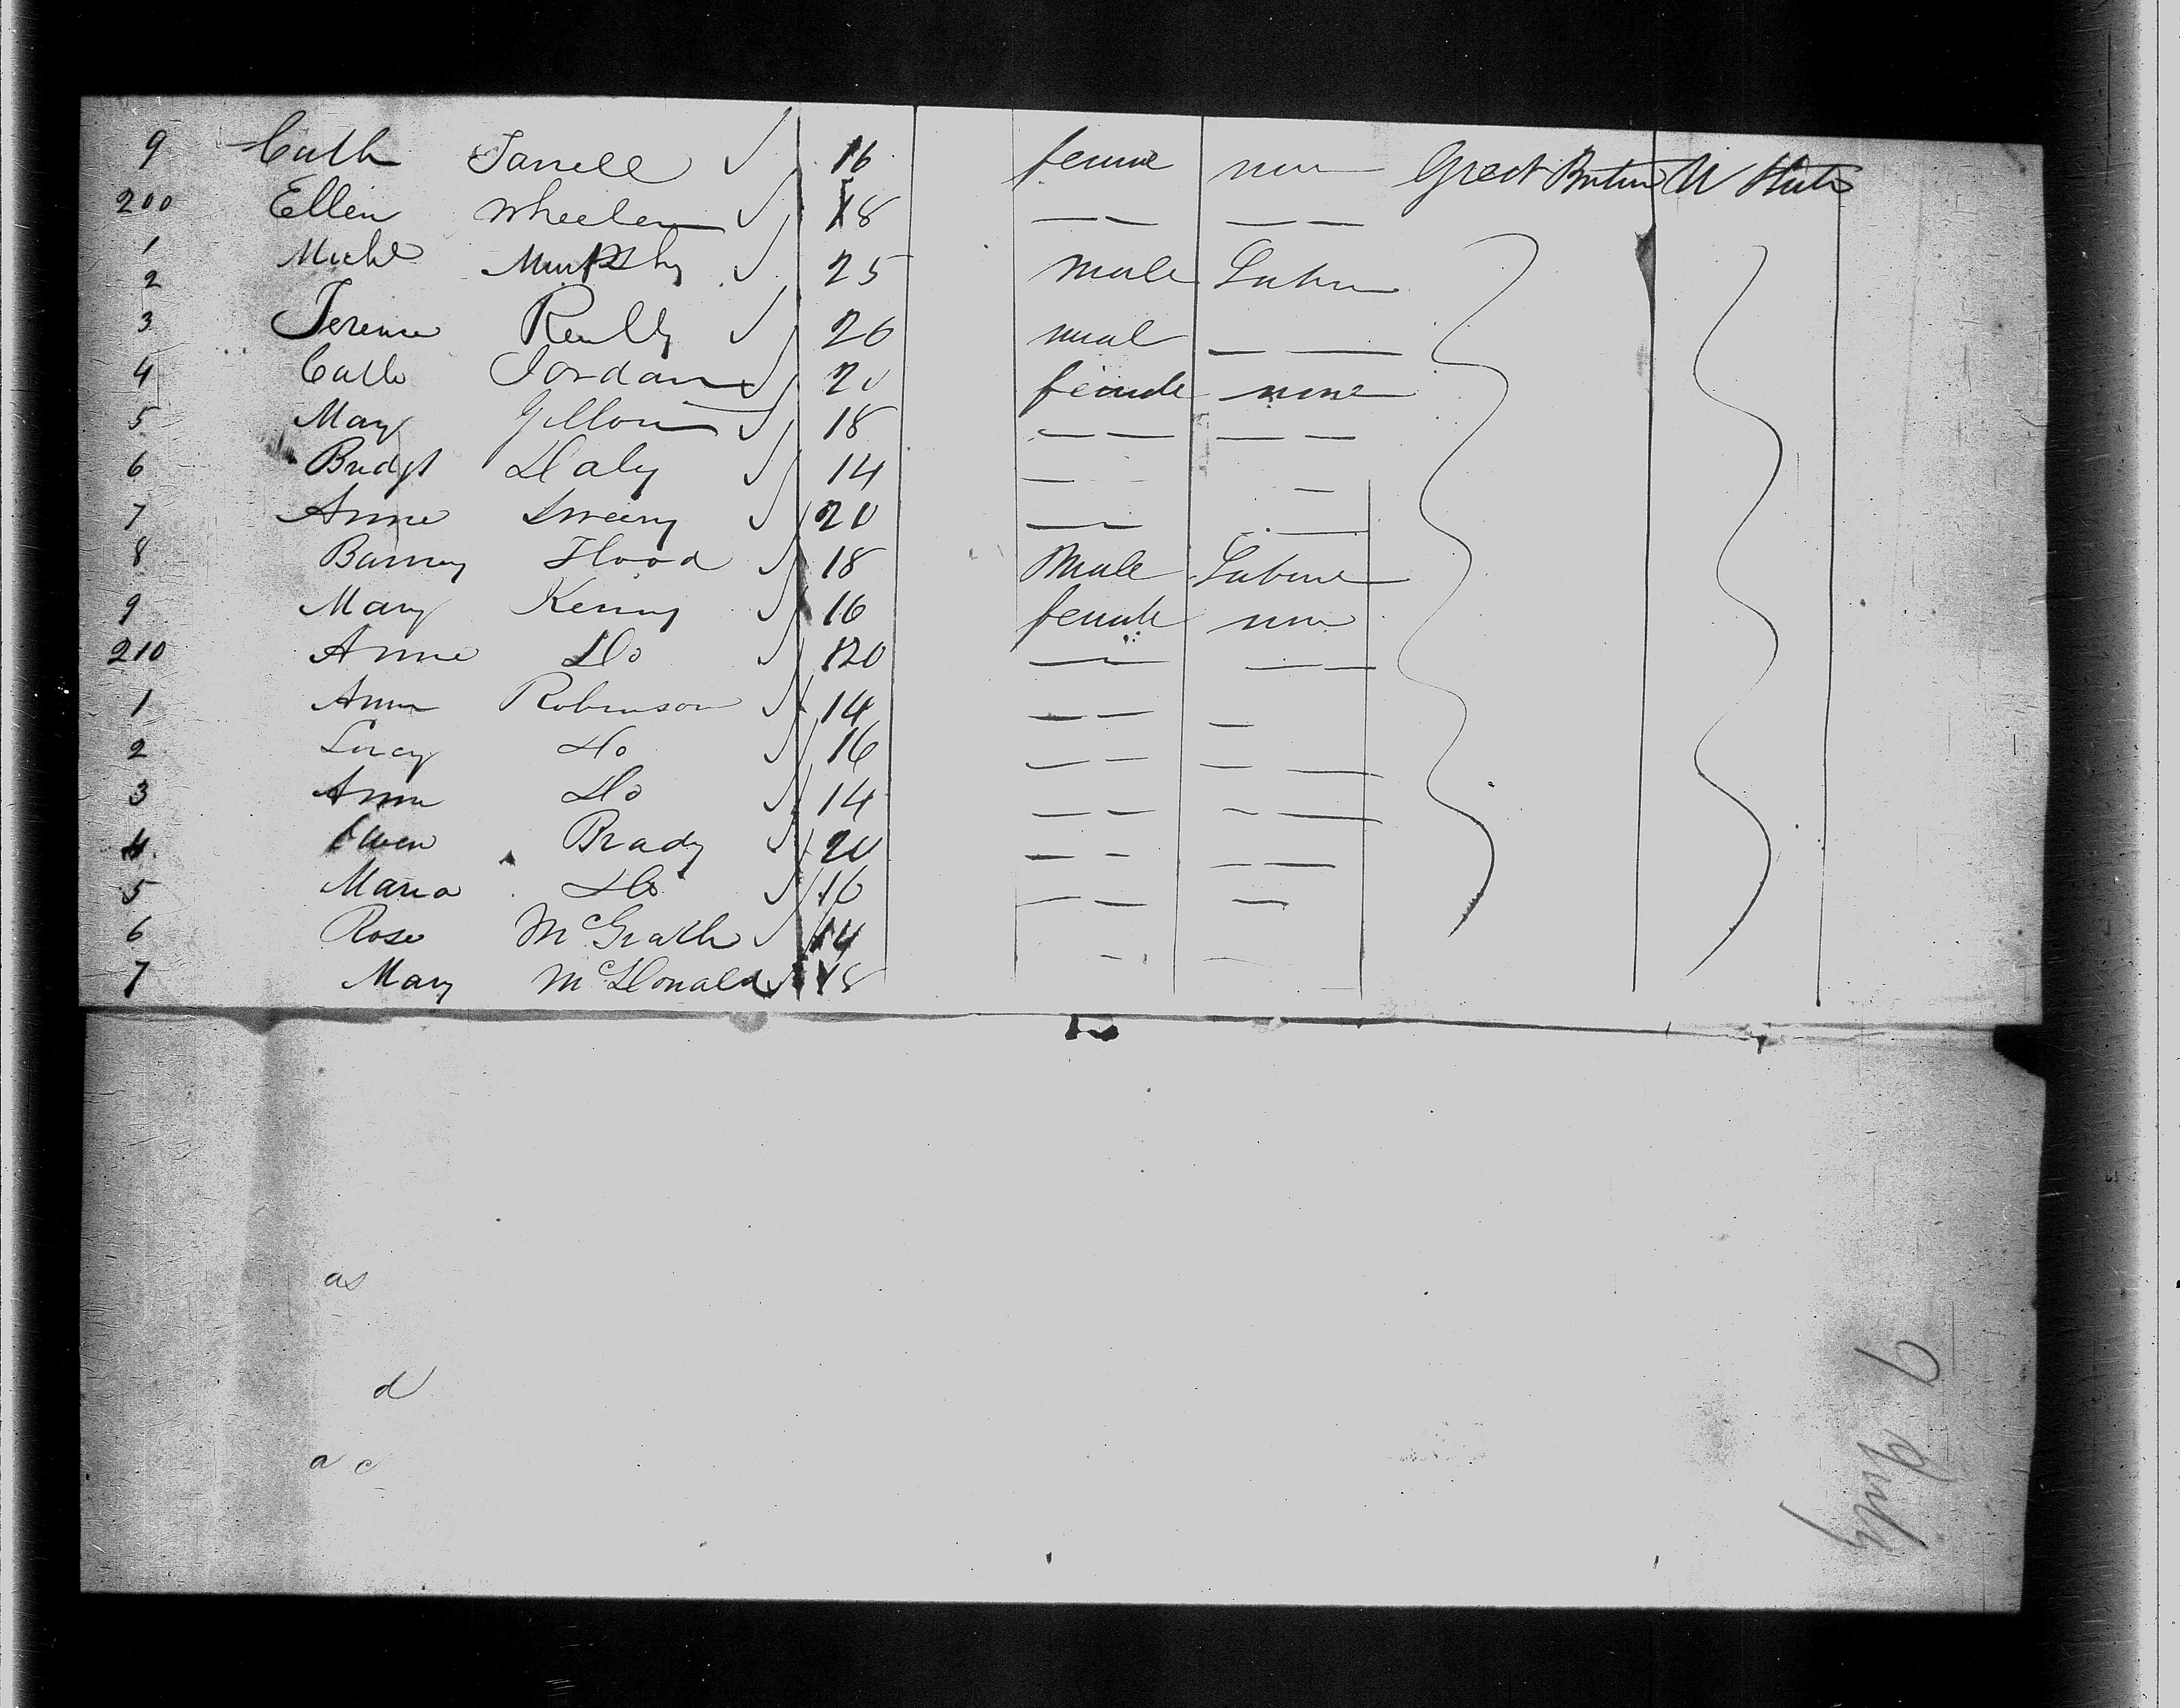 9 Cath Farrell 16 female none Great Britain U States
200 Ellen Wheelen 18 — — — —
1 Michl Murphy 25 male Labr
2 Terence Reilly 26 male — —
3 Cath Jordan 20 female none
4 Mary 18 — — — —
5 Bridgt Daly 14 — —
6 Anne 20 — —
7 Barney Flood 18 Male Labour
8 Mary Kenny 16 female none
9 Anne Do 20 — — —
210 Anne Robinson 14 — — —
1 Lucy Do 16 — — — —
2 Anne Do 14 — — — —
3 Owen Brady 20 — — — —
4 Maria Do 16 — — —
5 Rose McGrath 14
6 Mary McDonald 18
7
as
d
a c
9